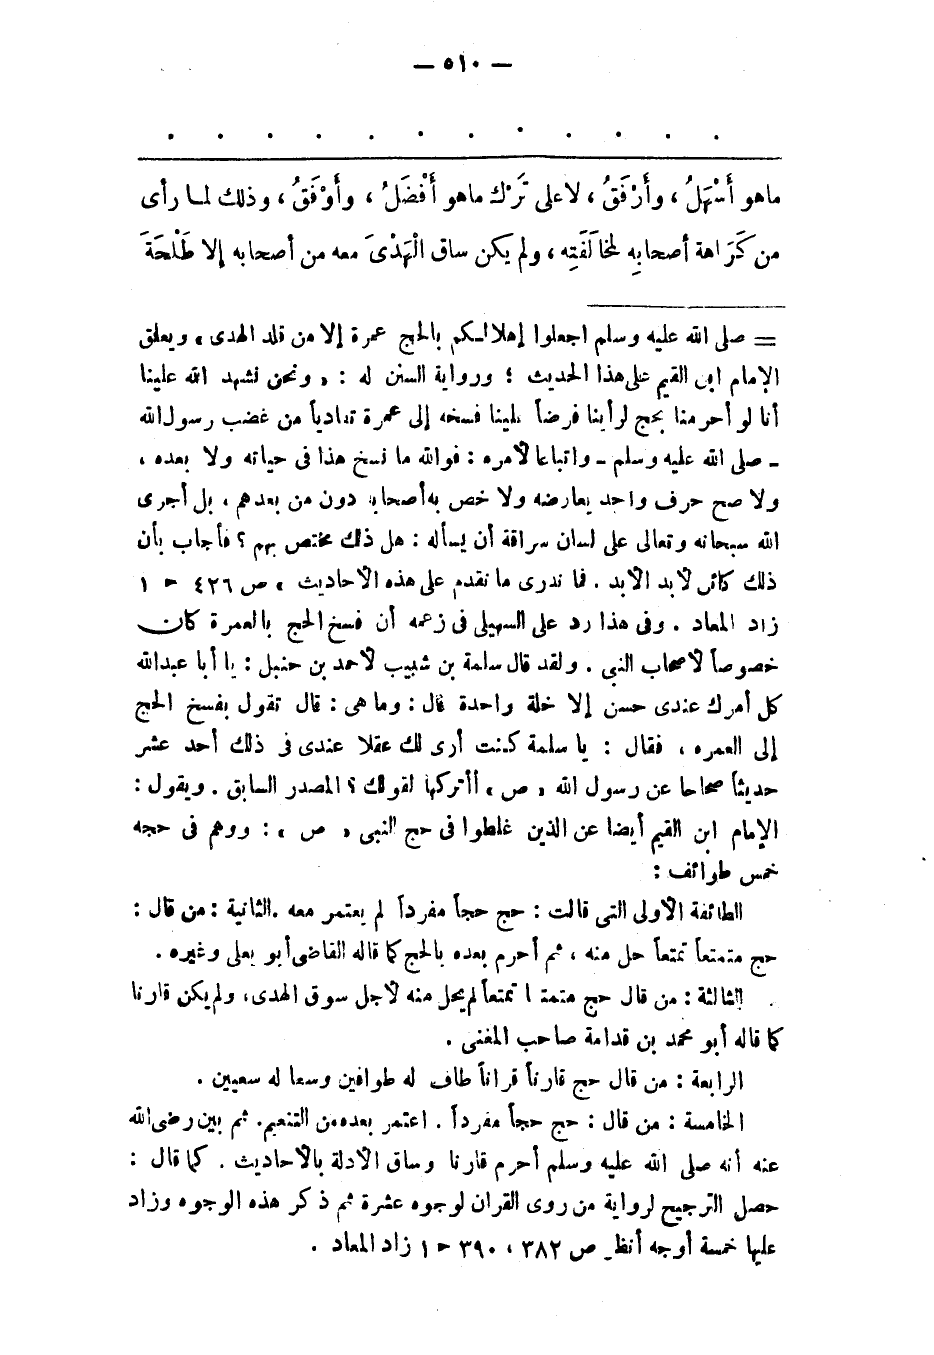 — ٥١٠ —
. . . . . . . . . . . .
ماهو أَسْهَلُ ، وأَرْفَقُ ، لا على تَرْك ماهو أَفْضَلُ ، وأَوْفَقُ ، وذلك لما رأى
من كَرَاهة أصحابِه لمُخَالَفَتِه ، ولم يكن ساق الْهَدْىَ معه من أصحابه إلا طَلْحَةَ
= صلى الله عليه وسلم اجعلوا إهلالكم بالحج عمرة إلا من قلد الهدى ، ويعلق
الإمام ابن القيم على هذا الحديث ؛ ورواية السنن له : « ونحن نشهد الله علينا
أنا لو أحرمنا بحج لرأينا فرضاً علينا فسخه إلى عمرة تفادياً من غضب رسول الله
ـ صلى الله عليه وسلم ـ واتباعا لأمره : فوالله ما نسخ هذا فى حياته ولا بعده ،
ولا صح حرف واحد يعارضه ولا خص به أصحابه دون من بعدهم ، بل أجرى
الله سبحانه وتعالى على لسان سراقة أن يسأله : هل ذلك مختص بهم ؟ فأجاب بأن
ذلك كائن لأبد الأبد . فما ندرى ما نقدم على هذه الأحاديث » ص ٤٢٦ حـ ١
زاد المعاد . وفى هذا رد على السهيلى فى زعمه أن فسخ الحج بالعمرة كان
خصوصاً لأصحاب النبى . ولقد قال سلمة بن شبيب لأحمد بن حنبل : يا أبا عبدالله
كل أمرك عندى حسن إلا خلة واحدة قال : وما هى : قال تقول بفسخ الحج
إلى العمره ، فقال : يا سلمة كنت أرى لك عقلا عندى فى ذلك أحد عشر
حديثاً صحاحا عن رسول الله « ص » أأتركها لقولك ؟ المصدر السابق . ويقول :
الإمام ابن القيم أيضا عن الذين غلطوا فى حج النبى « ص » : ووهم فى حجه
خمس طوائف :
الطائفة الأولى التى قالت : حج حجاً مفرداً لم يعتمر معه . الثانية : من قال :
حج متمتعاً تمتعاً حل منه ، ثم أحرم بعده بالحج كما قاله القاضى أبو يعلى وغيره .
الثالثة : من قال حج متمتعا تمتعاً لم يحل منه لأجل سوق الهدى، ولم يكن قارنا
كما قاله أبو محمد بن قدامة صاحب المغنى .
الرابعة : من قال حج قارناً قراناً طاف له طوافين وسعا له سعيين .
الخامسة : من قال : حج حجاً مفرداً . اعتمر بعده من التنعيم. ثم بين رضى الله
عنه أنه صلى الله عليه وسلم أحرم قارنا وساق الأدلة بالأحاديث . كما قال :
حصل الترجيح لرواية من روى القران لوجوه عشرة ثم ذكر هذه الوجوه وزاد
عليها خمسة أوجه أنظر ص ٣٨٢ ، ٣٩٠ حـ ١ زاد المعاد .